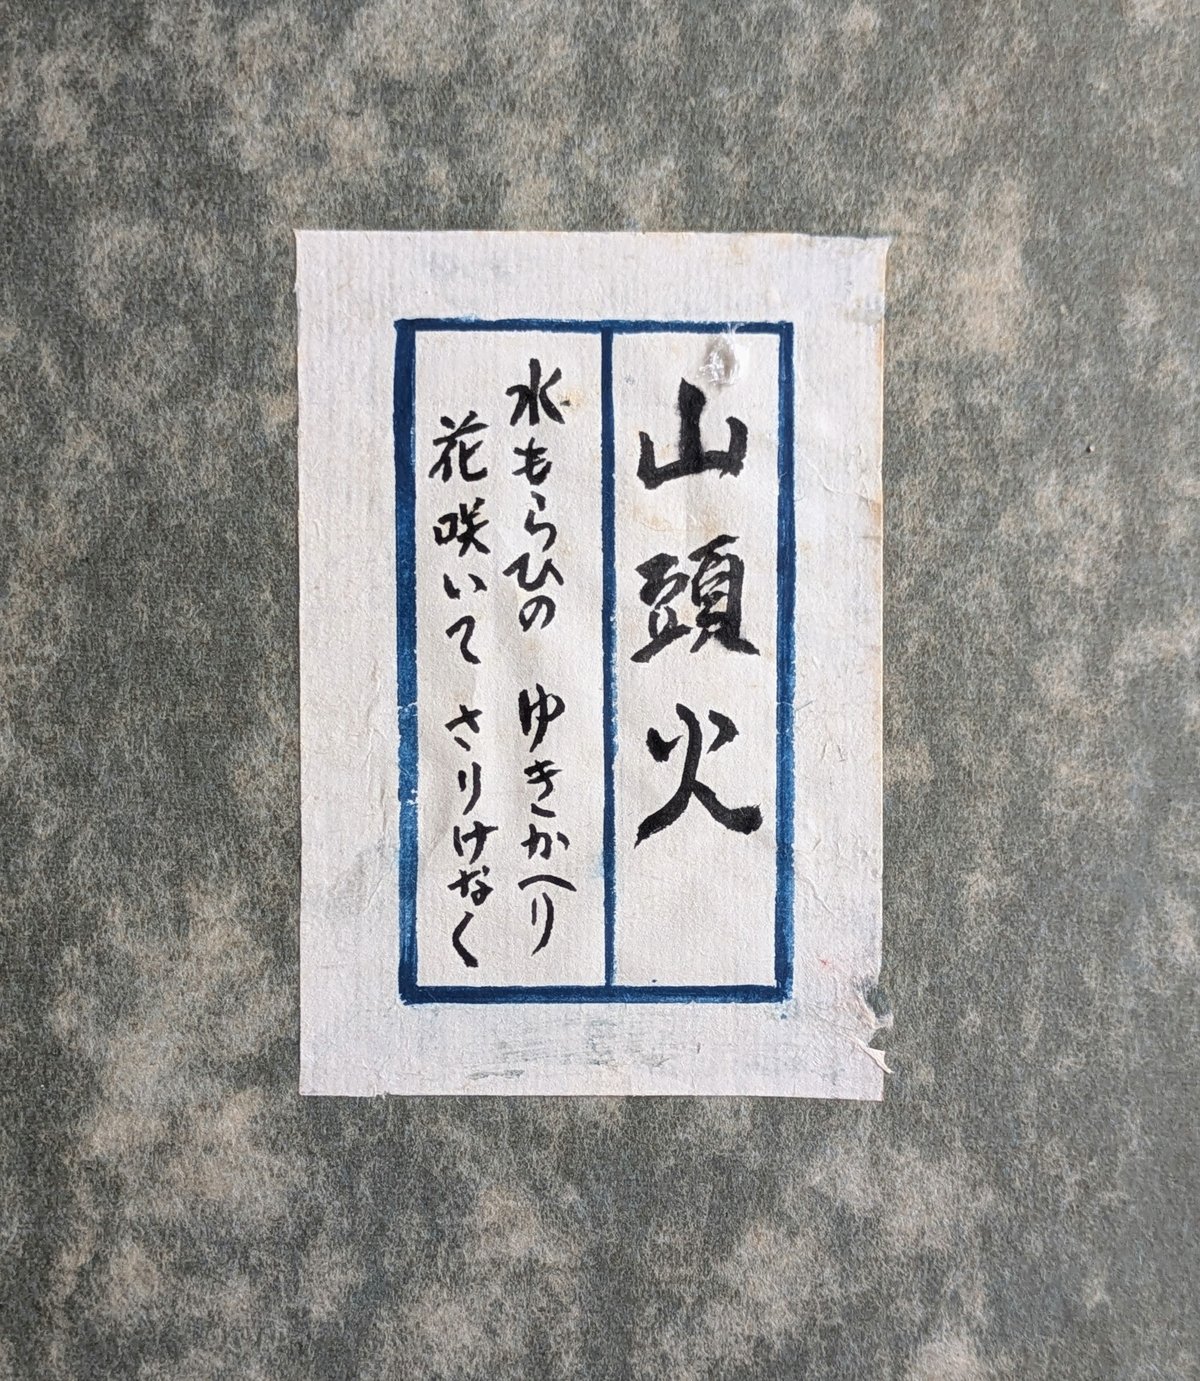 山頭火
水もらひの　ゆきかへり
花咲いて　さりけなく